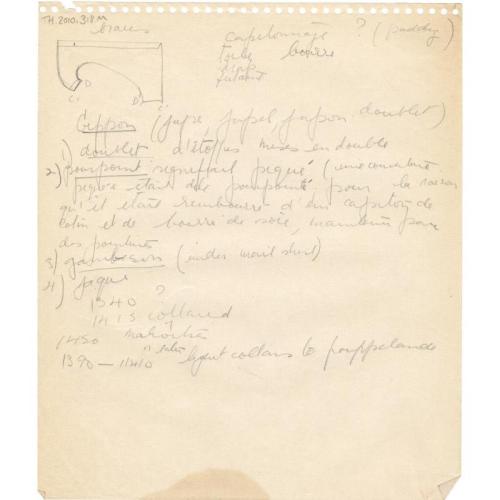 TH.2010.318M
braies
capitonnage ? (padding)
bourre
C D D C
Gippon (jupe, jupel, jupon, doublet)
1) doublet d'étoffes mises en double
2) pourpoint signifiait piqué (une couverte
piquée était dite pourpointé, pour la raison
qu'il était rembourré d'un capiton de
cotin et de bourre de soie, maintenu par
des pointures
3) gambeson (under mail shirt)
4) jaque
1340 ?
1415 collared
1450 mahoitres
1390 — 1410 collars to houppelande